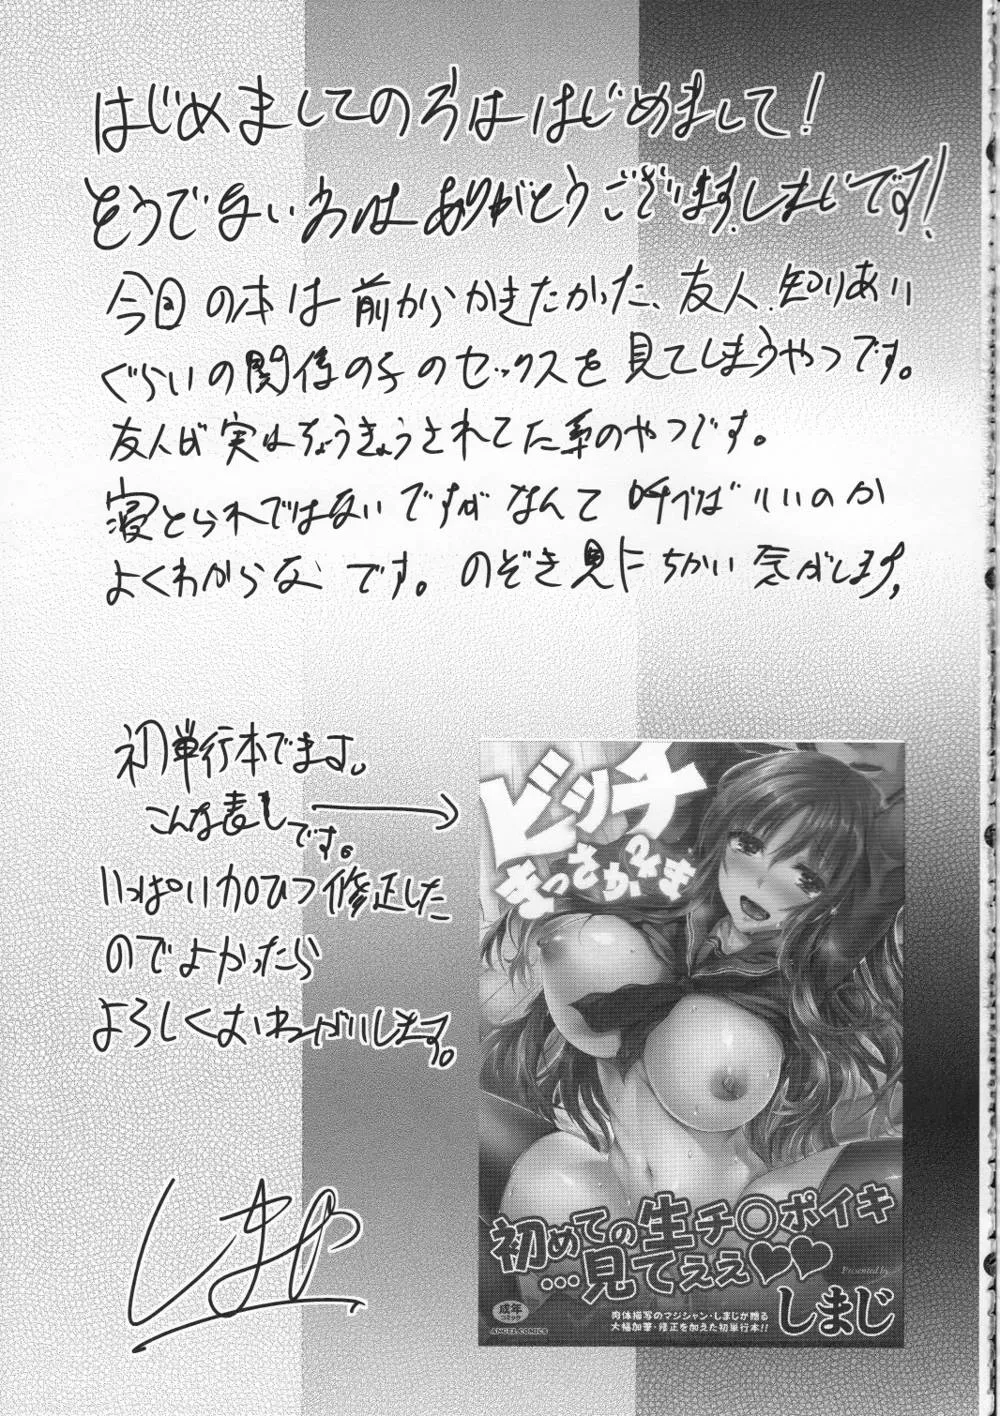 はじめましての方ははじめまして!
そうでない方はありがとうございます.しまじです!
今回の本は前からかきたかった、友人.知りあい
ぐらいの関係の子のセックスを見てしまうやつです。
友人が実はちょうきょうされてた系のやつです。
寝とられではないですがなんて呼べばいいのか
よくわからないです。のぞき見にちかい気がします。
初単行本でます。
こんな表しです。
いっぱい加ひつ修正した
のでよかったら
よろしくおねがいします。
しまじ
ビッチ
まっさかりま
初めての生チ〇ポイキ
…見てぇぇ♥♥
Presented by
しまじ
成年
コミック
ANGEL COMICS
肉体描写のマジシャン・しまじが贈る
大幅加筆・修正を加えた初単行本!!